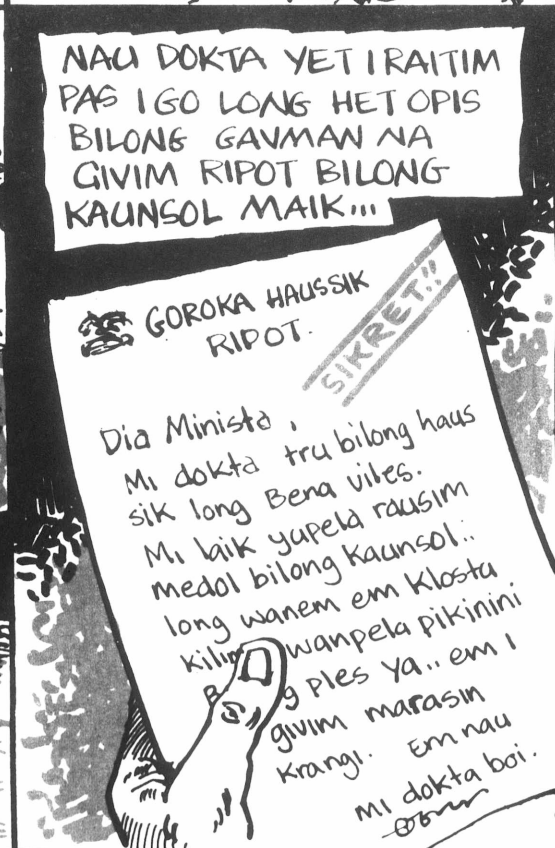 NAU DOKTA YET I RAITIM
PAS I GO LONG HET OPIS
BILONG GAVMAN NA
GIVIM RIPOT BILONG
KAUNSOL MAIK...
GOROKA HAUSSIK
RIPOT.
SIKRET!!
Dia Minista,
Mi dokta tru bilong haus
sik long Bena viles.
Mi laik yupela rausim
medol bilong kaunsol..
long wanem em klostu
kilim wanpela pikinini
ples ya.. em i
givim marasin
krangi. Em nau
mi dokta boi.